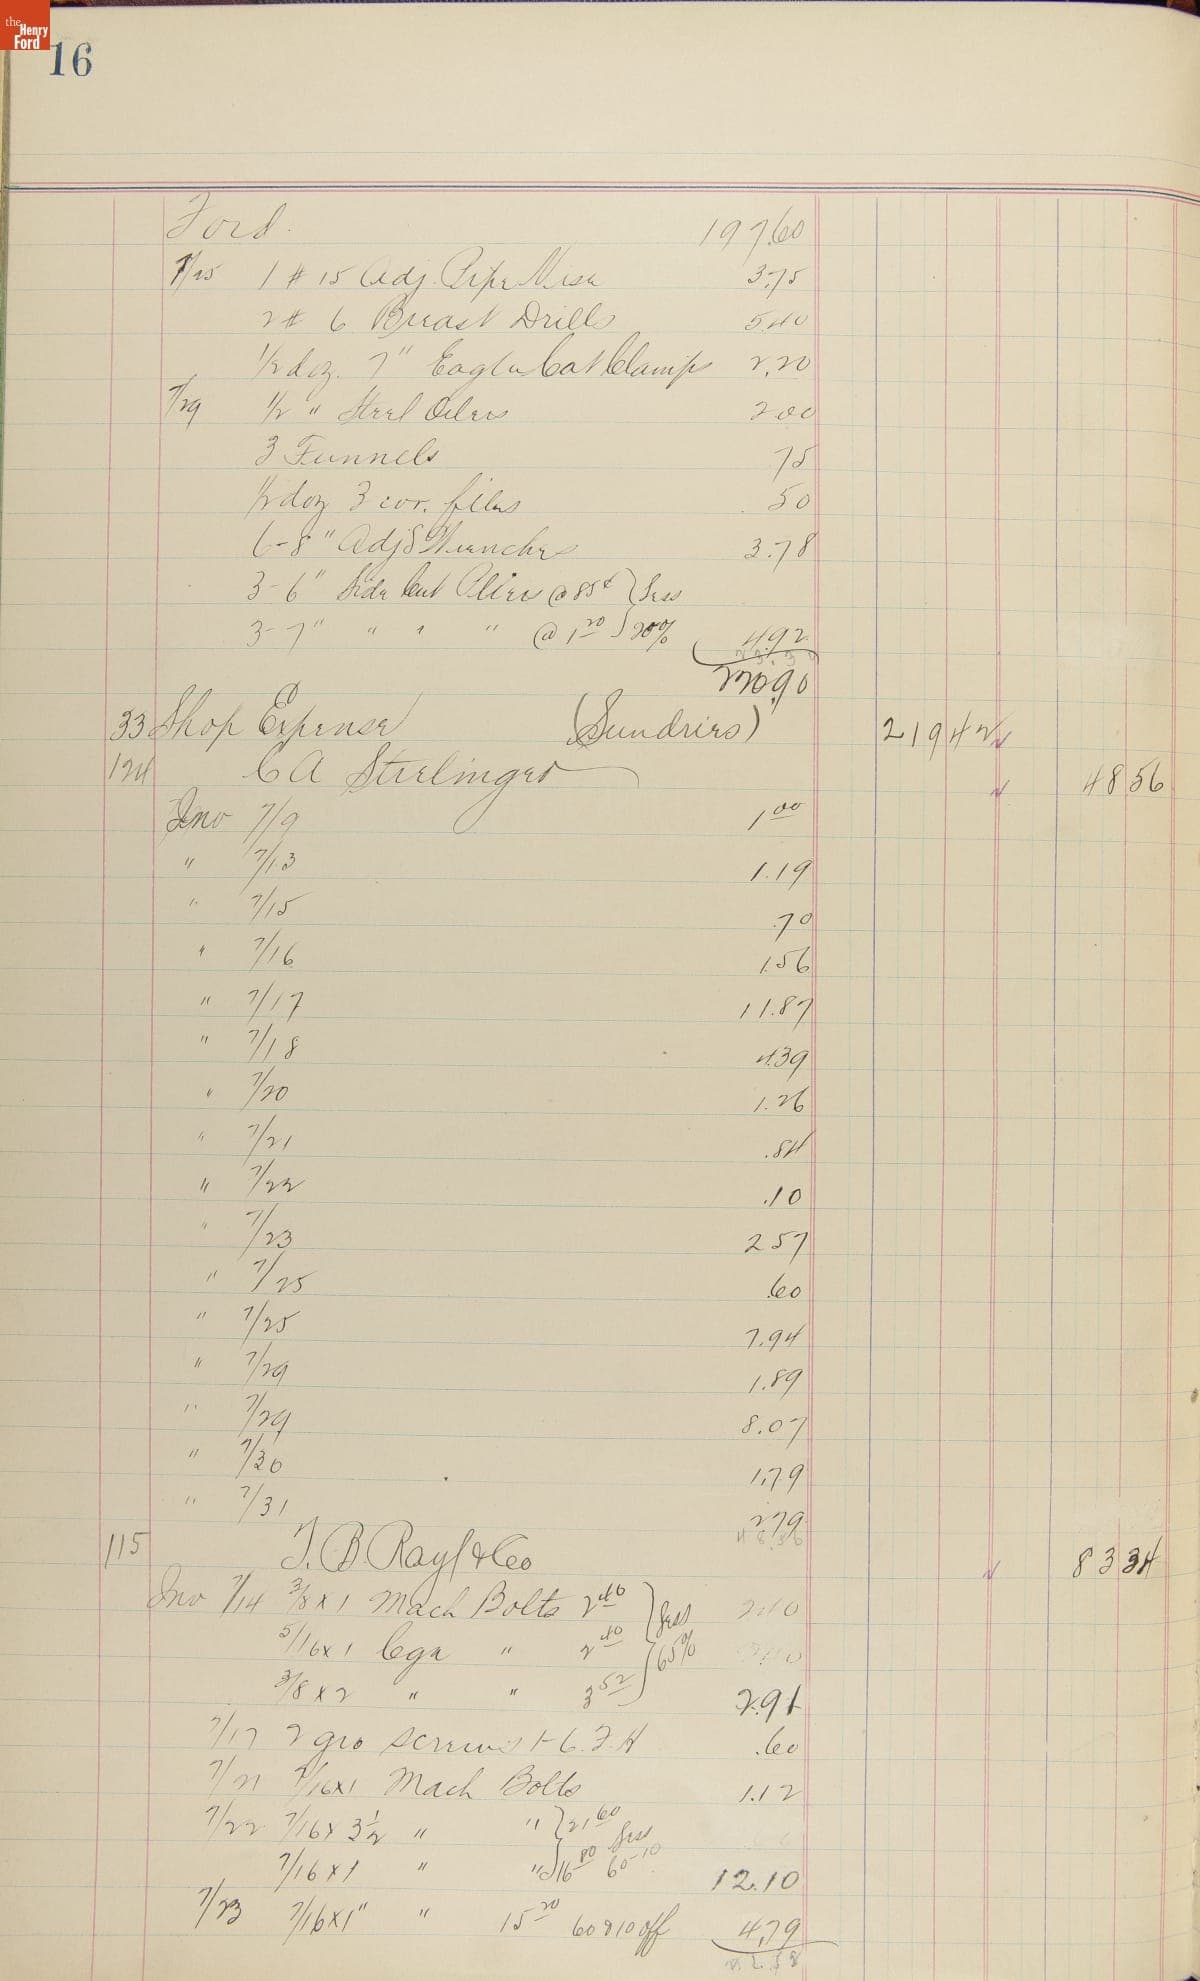 the Henry Ford
16
Ford. 197.60
7/25 1 # 15 Adj. Pipe Vise 3.75
2 # 6 Breast Drills 5.40
1/2 doz. 7" Eagle Clamps 2.20
7/29 1/2 " Steel Oilers 2.00
3 Funnels 75
1/2 doz 3 cor. files 50
6-8" Adj S Wrenches 3.78
3-6" Side Cut Pliers @ 85¢ } Less
3-7" " " " @ 1 20 } 20% 4.92
23.30
220.90
33 Shop Expense (Sundries) 219 42
124 C A Strelinger 48 56
Inv 7/9 1 00
" 7/13 1.19
" 7/15 .70
" 7/16 1.56
" 7/17 11.87
" 7/18 4.39
" 7/20 1.26
" 7/21 .84
" 7/22 .10
" 7/23 2 57
" 7/25 .60
" 7/25 7.94
" 7/29 1.89
" 7/29 8.07
" 7/30 1.79
" 7/31 2.79
48.56
115 T. B Rayl & Co 83 34
Inv 7/14 3/8 x 1 Mach Bolts 2 40 } Less 2.40
5/16 x 1 " 2 40 } 65%
3/8 x 2 " " 3 52 } 2.91
7/17 2 gro screws 1-6 F.H .60
7/21 7/16x1 Mach Bolts 1.12
7/22 7/16 x 3 1/2 " " } 21 60 Less
7/16 x 1 " " } 16 80 60-10 12.10
7/23 7/16 x 1" " 15 20 60 & 10 off 4.79